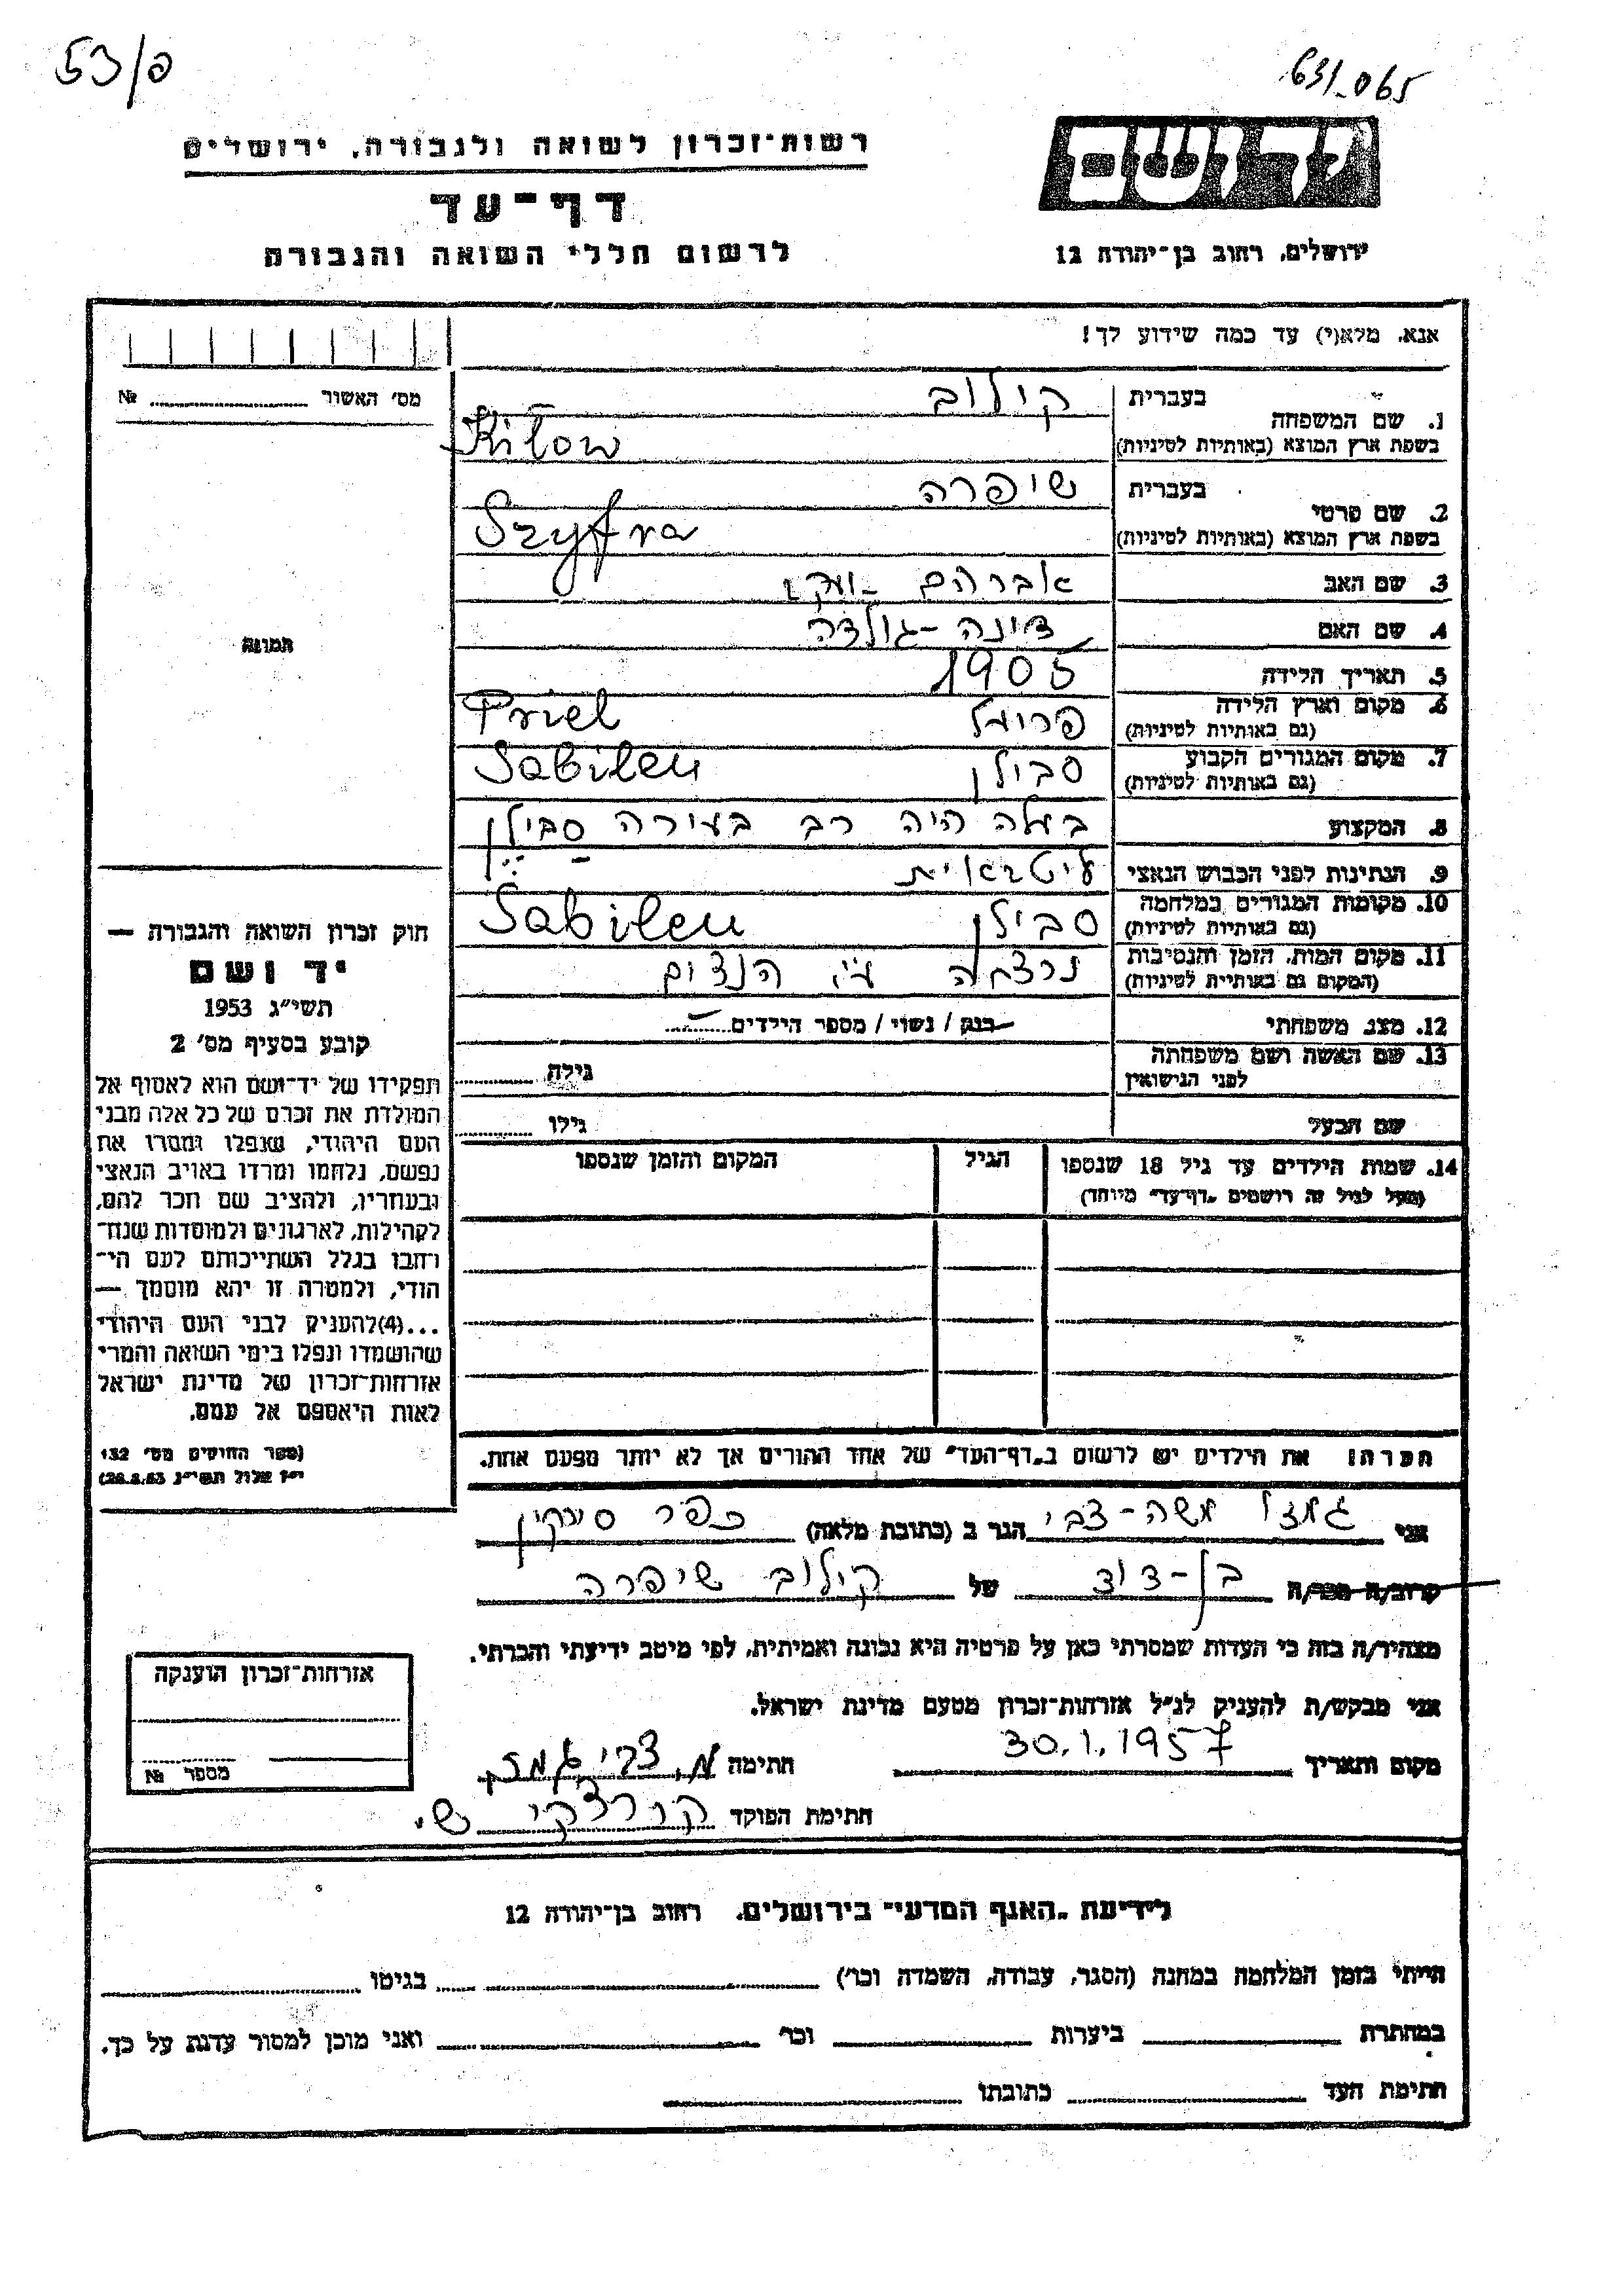 53/פ
631-065
רשות-זכרון לשואה ולגבורה, ירושלים
יד ושם
דף-עד
לרשום חללי השואה והגבורה
ירושלים, רחוב בן-יהודה 12
אנא, מלא(י) עד כמה שידוע לך!
מס' האשור № 
1. שם המשפחה
בעברית קילוב
בשפת ארץ המוצא (באותיות לטיניות) Kilow
2. שם פרטי
בעברית שיפרה
בשפת ארץ המוצא (באותיות לטיניות) Szyfra
3. שם האב אברהם
4. שם האם דינה-גולדה
5. תאריך הלידה 1905
6. מקום וארץ הלידה פריאל Priel
(גם באותיות לטיניות)
7. מקום המגורים הקבוע סבילן Sabilen
(גם באותיות לטיניות)
8. המקצוע בעלה היה רב בעירה סבילן
9. הנתינות לפני הכבוש הנאצי ליטאית
10. מקומות המגורים במלחמה סבילן Sabilen
(גם באותיות לטיניות)
11. מקום המות, הזמן והנסיבות נרצחה ע"י הנצים
(המקום גם באותיית לטיניות)
12. מצב משפחתי רווק / נשוי / מספר הילדים
13. שם האשה ושם משפחתה
לפני הנישואין
גילה
שם הבעל גילו
14. שמות הילדים עד גיל 18 שנספו
(מעל לגיל זה רושמים "דף-עד" מיוחד)
הגיל
המקום והזמן שנספו
תמונה
חוק זכרון השואה והגבורה —
יד ושם
תשי"ג 1953
קובע בסעיף מס' 2
תפקידו של יד-ושם הוא לאסוף אל
המולדת את זכרם של כל אלה מבני
העם היהודי, שנפלו ומסרו את
נפשם, נלחמו ומרדו באויב הנאצי
ובעוזריו, ולהציב שם וזכר להם,
לקהילות, לארגונים ולמוסדות שנח-
רבו בגלל השתייכותם לעם הי-
הודי, ולמטרה זו יהא מוסמך —
...(4)להעניק לבני העם היהודי
שהושמדו ונפלו בימי השואה והמרי
אזרחות-זכרון של מדינת ישראל
לאות היאספם אל עמם.
(ספר החוקים מס' 132
י"ז אלול תשי"ג 28.8.53)
הערה! את הילדים יש לרשום ב"דף-העד" של אחד ההורים אך לא יותר מפעם אחת.
אני גמזו משה-צבי הגר ב (כתובת מלאה) כפר סירקין
קרוב/ה מכר/ה בן-דוד של קילוב שיפרה
מצהיר/ה בזה כי העדות שמסרתי כאן על פרטיה היא נכונה ואמיתית, לפי מיטב ידיעתי והכרתי.
אני מבקש/ת להעניק לנ"ל אזרחות-זכרון מטעם מדינת ישראל.
מקום ותאריך 30.1.1957 חתימה מ. צבי גמזו
חתימת הפוקד
אזרחות-זכרון הוענקה
מספר №
לידיעת "האגף המדעי" בירושלים, רחוב בן-יהודה 12
הייתי בזמן המלחמה במחנה (הסגר, עבודה, השמדה וכו') בגיטו
במחתרת ביערות וכו' ואני מוכן למסור עדות על כך.
חתימת העד כתובתו